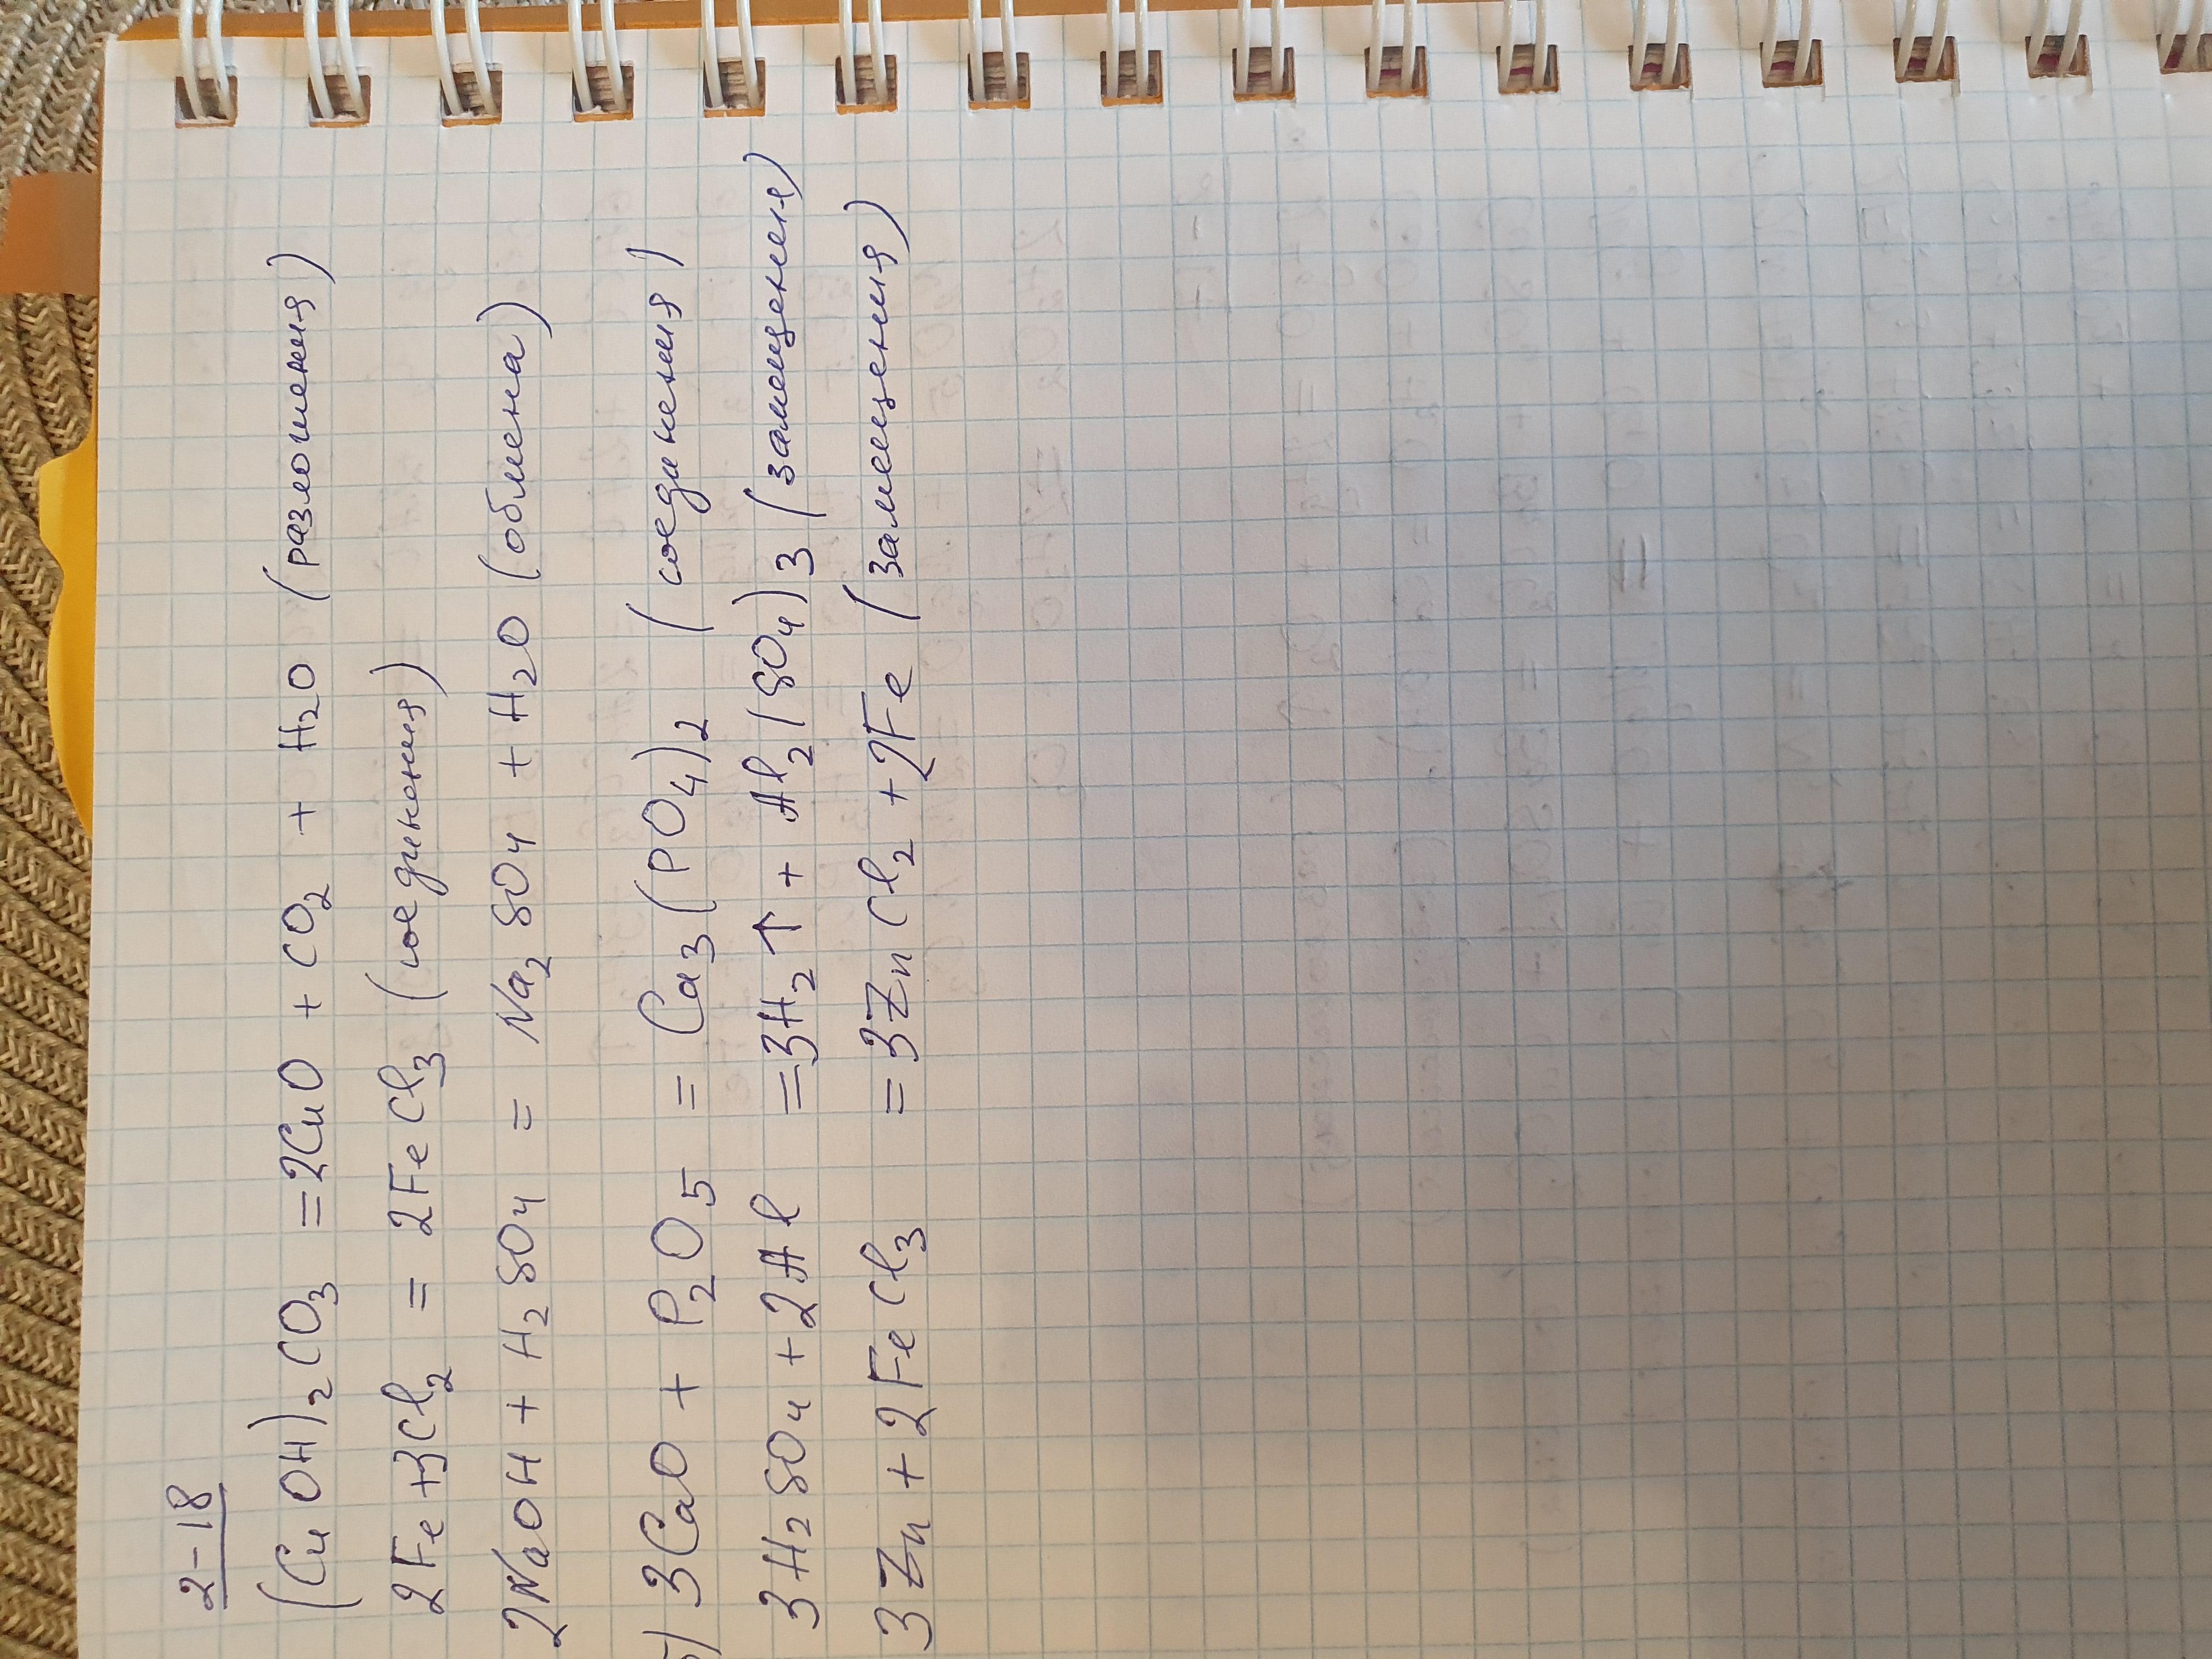 2-18
(CuOH)₂CO₃ = 2CuO + CO₂ + H₂O (разложения)
2Fe + 3Cl₂ = 2FeCl₃ (соединения)
2NaOH + H₂SO₄ = Na₂SO₄ + H₂O (обмена)
б) 3CaO + P₂O₅ = Ca₃(PO₄)₂ (соединения)
3H₂SO₄ + 2Al = 3H₂↑ + Al₂(SO₄)₃ (замещения)
3Zn + 2FeCl₃ = 3ZnCl₂ + 2Fe (замещения)